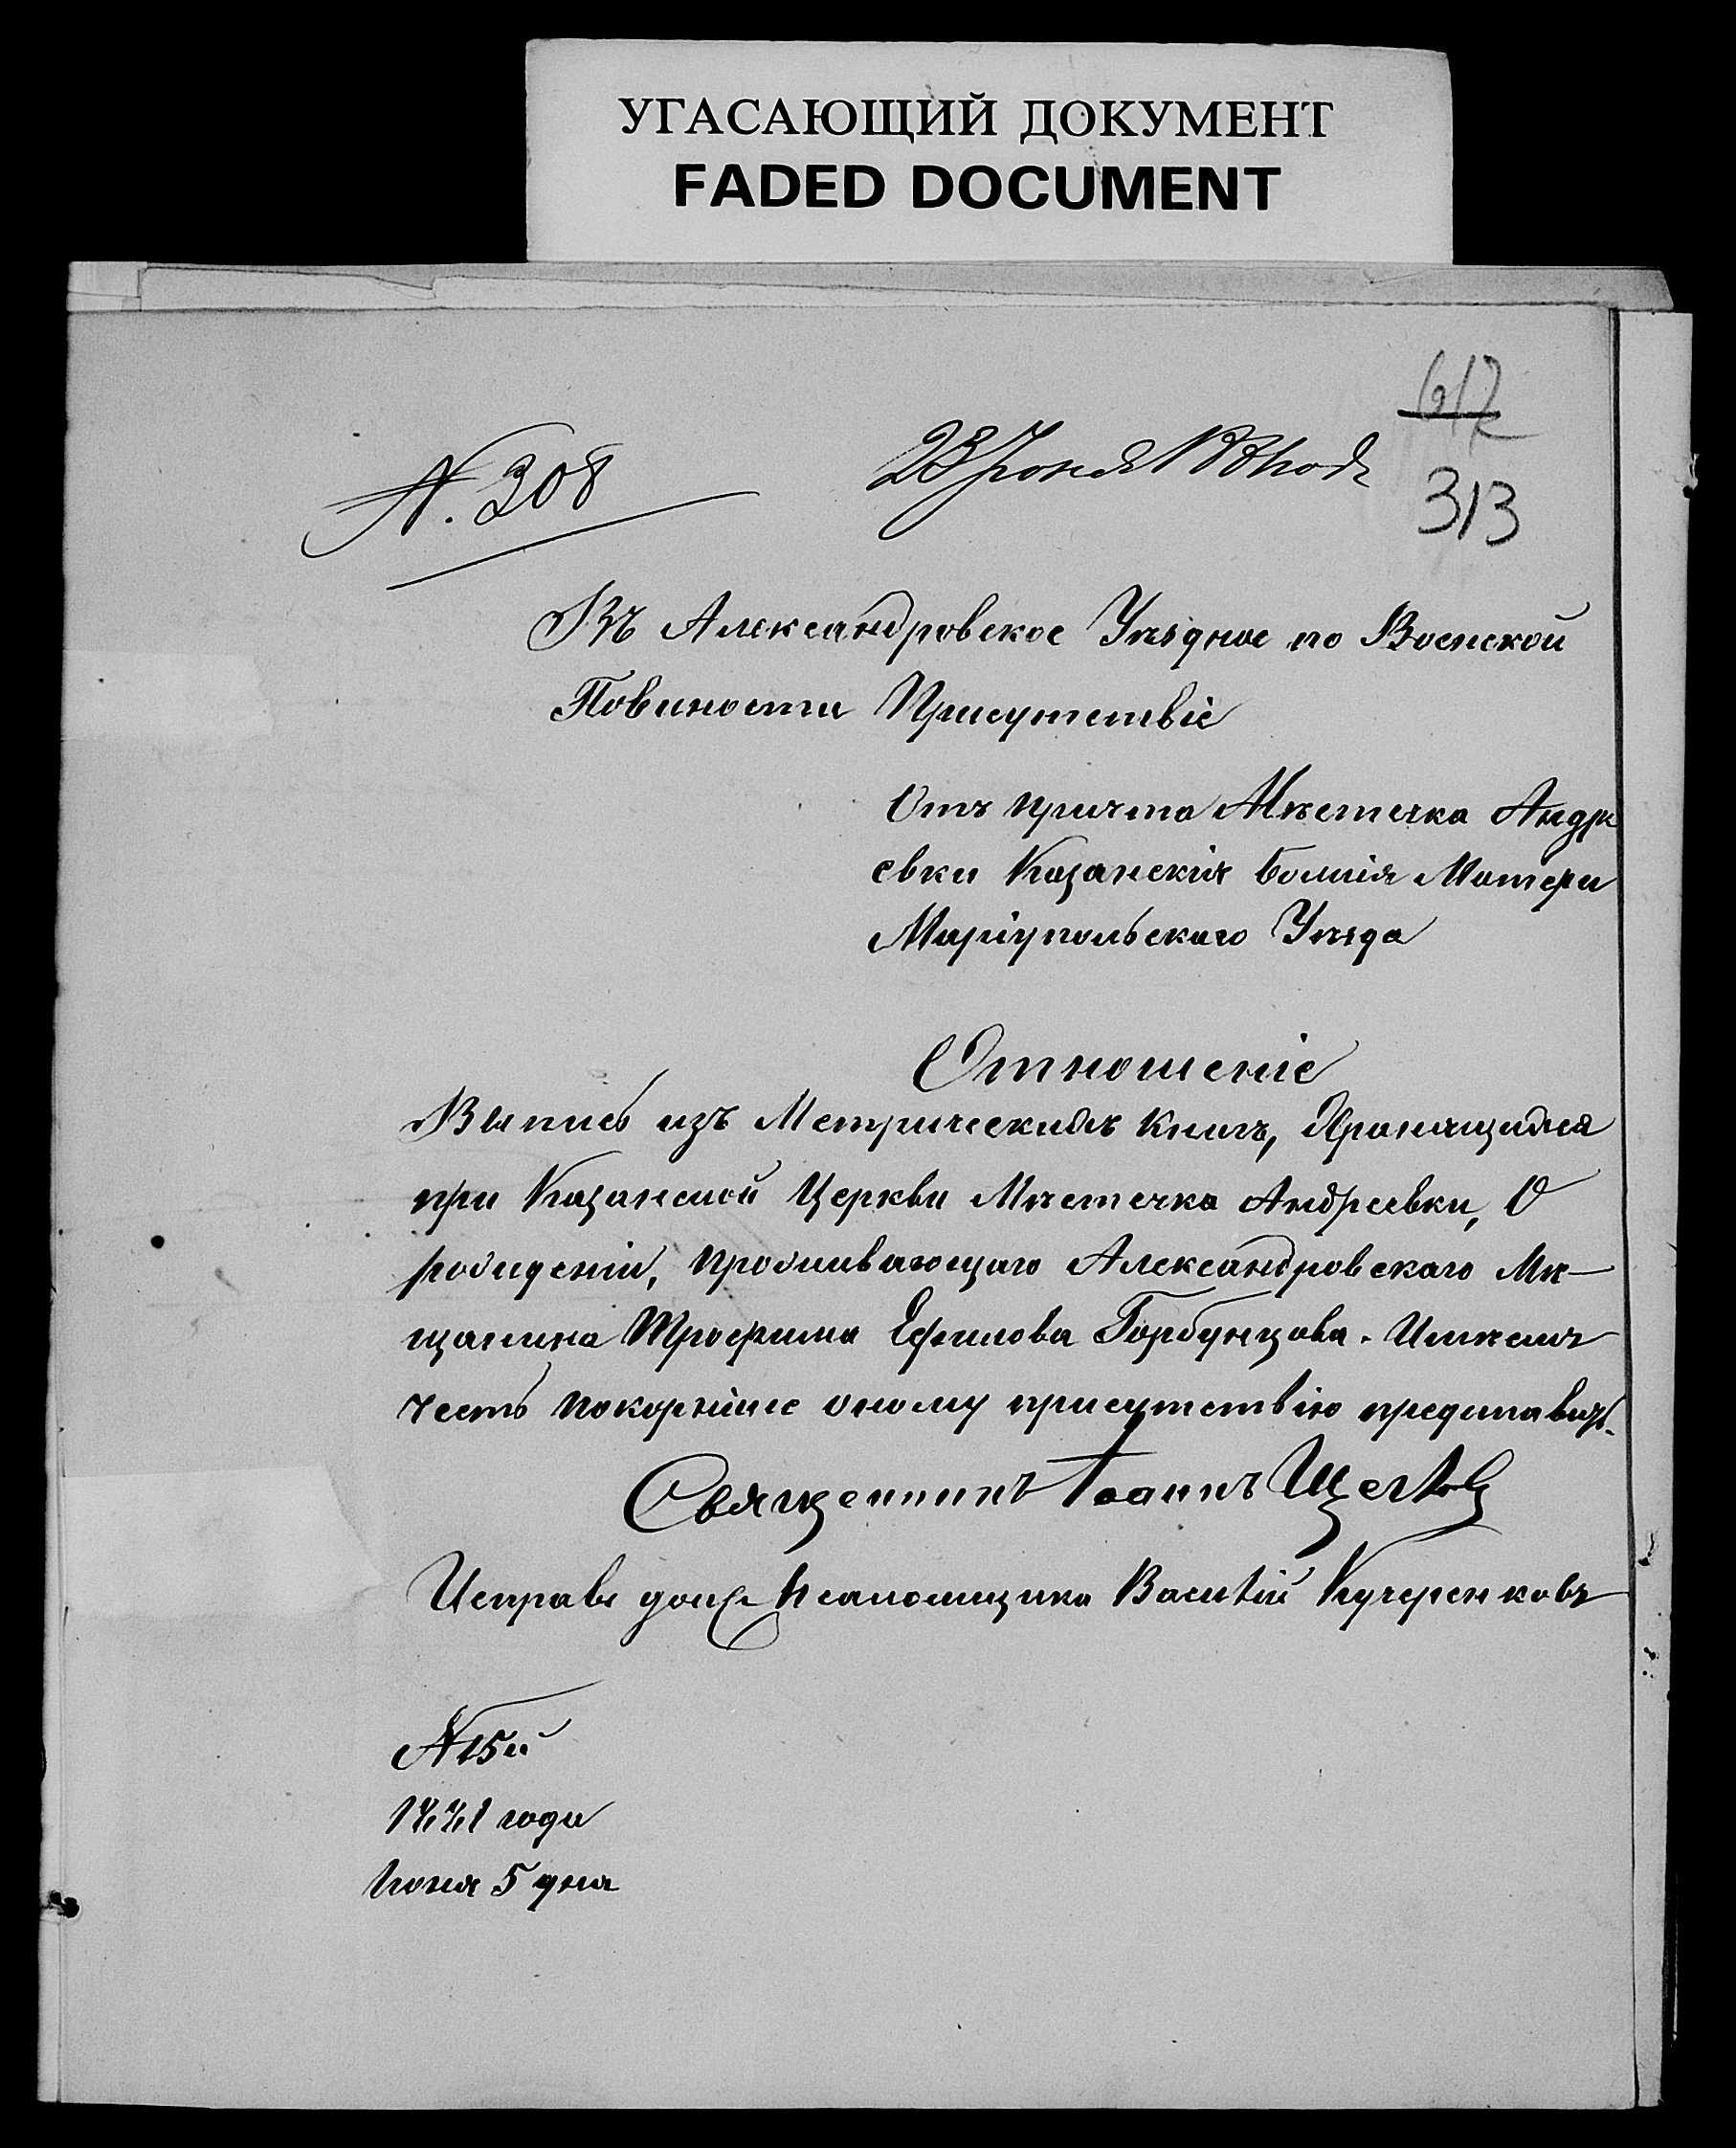 УГАСАЮЩИЙ ДОКУМЕНТ
FADED DOCUMENT
617
N. 308
23 Іюня 1881 года
313
Въ Александровское Уѣздное по Воинской
Повиности Присутствіе
Отъ причта Мѣстечка Андре
евки Казанскія Божія Матери
Маріупольскаго Уѣзда
Отношеніе
Выпись изъ Метрическихъ книгъ, Хранящихся
при Казанской Церкви Мѣстечка Андреевки, О
рождении, проживающаго Александровскаго Мѣ-
щанина Трофима Ефимова Горбунцова. Имѣемъ
честь покорнѣише оному присутствію представить.
Священникъ Іоаннъ
Исправл долж. Псаломщика Василій Кучеренковъ
N 15й
1881 года
Июня 5 дня